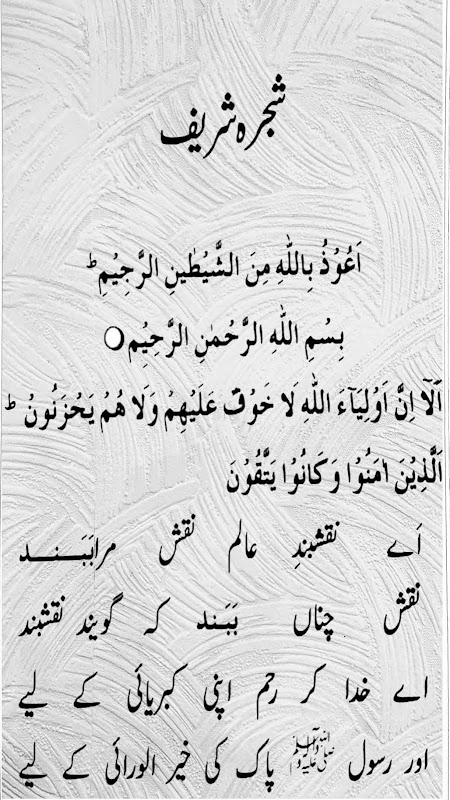 شجرہ شریف
اَعُوْذُ بِاللّٰهِ مِنَ الشَّيْطٰنِ الرَّجِيْمِ ؕ
بِسْمِ اللّٰهِ الرَّحْمٰنِ الرَّحِيْمِ ○
اَلَآ اِنَّ اَوْلِيَآءَ اللّٰهِ لَا خَوْفٌ عَلَيْهِمْ وَلَا هُمْ يَحْزَنُوْنَ ؕ
اَلَّذِيْنَ اٰمَنُوْا وَكَانُوْا يَتَّقُوْنَ
اَے نقشبندِ عالم نقش مرابَبَند
نقش چناں بَبَند کہ گویند نقشبند
اے خدا کر رحم اپنی کبریائی کے لیے
اور رسول ﷺ پاک کی خیر الورائی کے لیے